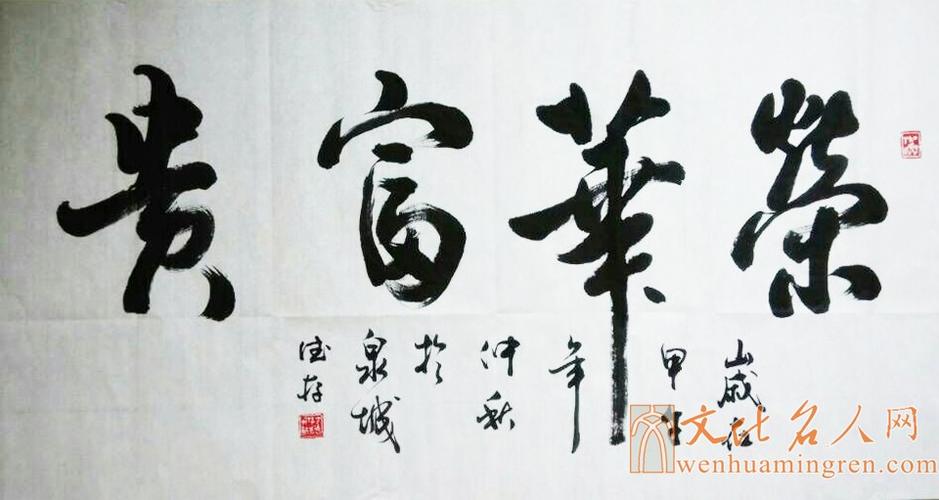 榮華富貴
歲在
甲午
年
仲秋
於
泉城
德存
文化名人网
wenhuamingren.com